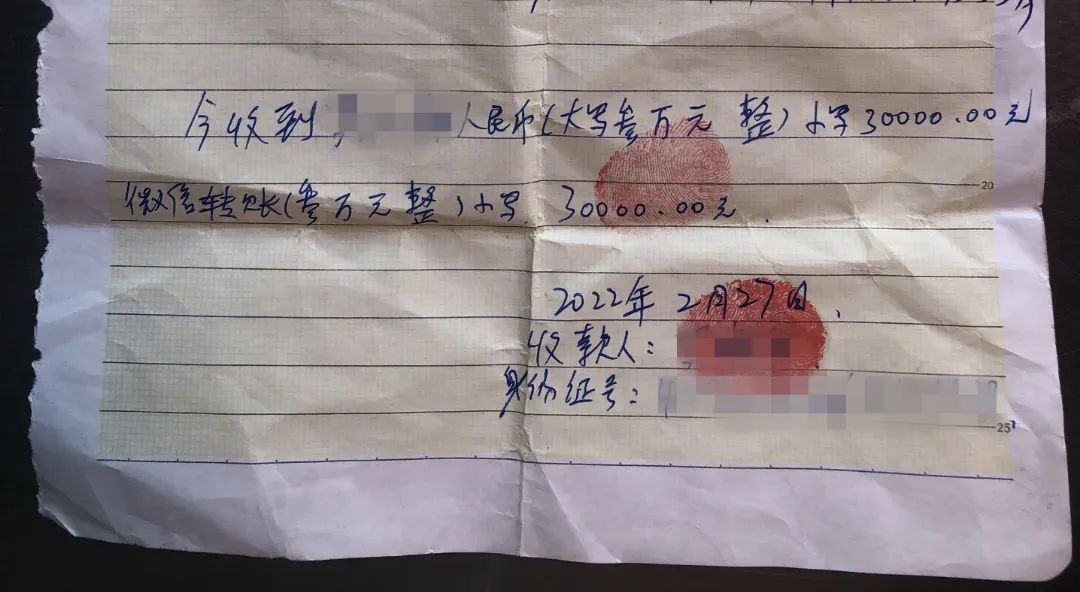 今收到 人民币(大写叁万元 整)小写30000.00元
微信转账(叁万元 整)小写 30000.00元.
20
2022年 2月27日.
收款人:
身份证号:
25